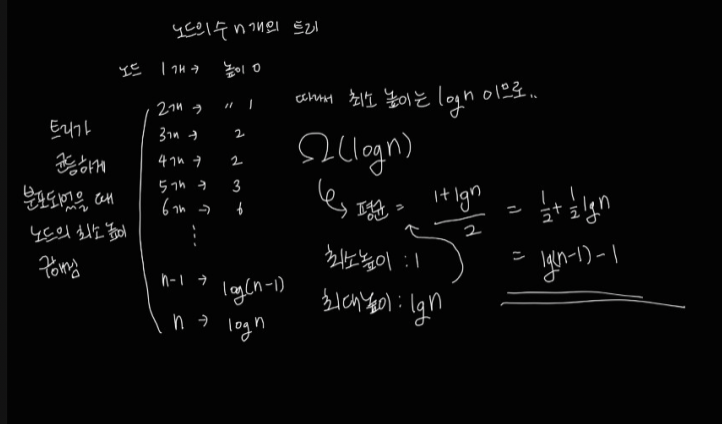 노드의 수 n개의 트리
노드 1개 → 높이 0
2개 → " 1
3개 → 2
4개 → 2
5개 → 3
6개 →
⋮
n-1 → log(n-1)
n → logn
트리가
균등하게
분포되었을 때
노드의 최소 높이
구해짐
따라서 최소 높이는 logn 이므로..
Ω(logn)
↳ 평균 = (1+lgn)/2 = 1/2 + 1/2 lgn
최소높이 : 1
= lg(n-1) - 1
최대높이 : lgn